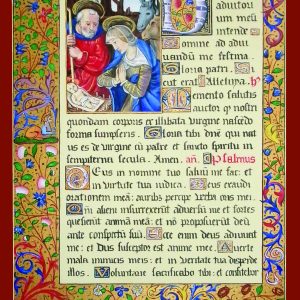 D adiutoriū
meū
intende
Domine ad adiu
uandū me festina
Gloria patri
sicut erat Alleluia
memento salutis
auctor qꝫ nostri
quondam corporis ex illibata virgine nascedo
formā sumpseris Gloria tibi dne qui nat
us es de virgine cū patre et sancto spiritu in
sempiterna secula. Amen. añ. Psalmus
Deus in nomine tuo saluū me fac: et
in virtute tua iudica. Deus exaudi
orationem meā: auribus percipe verba oris mei
Qm̄ alieni insurrexerūt aduersū me et fortes
quesierūt animā meā: et nō proposuerūt deū
ante conspectū suū. Ecce enim deus adiuuat
me: et dn̄s susceptor est anime mee. Auerte
mala inimicis meis: et in veritate tua disperde
illos. Voluntarie sacrificabo tibi: et confitebor